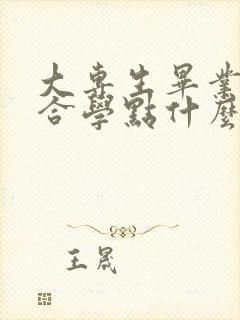 大專生畢業
合學點什麼
王晟